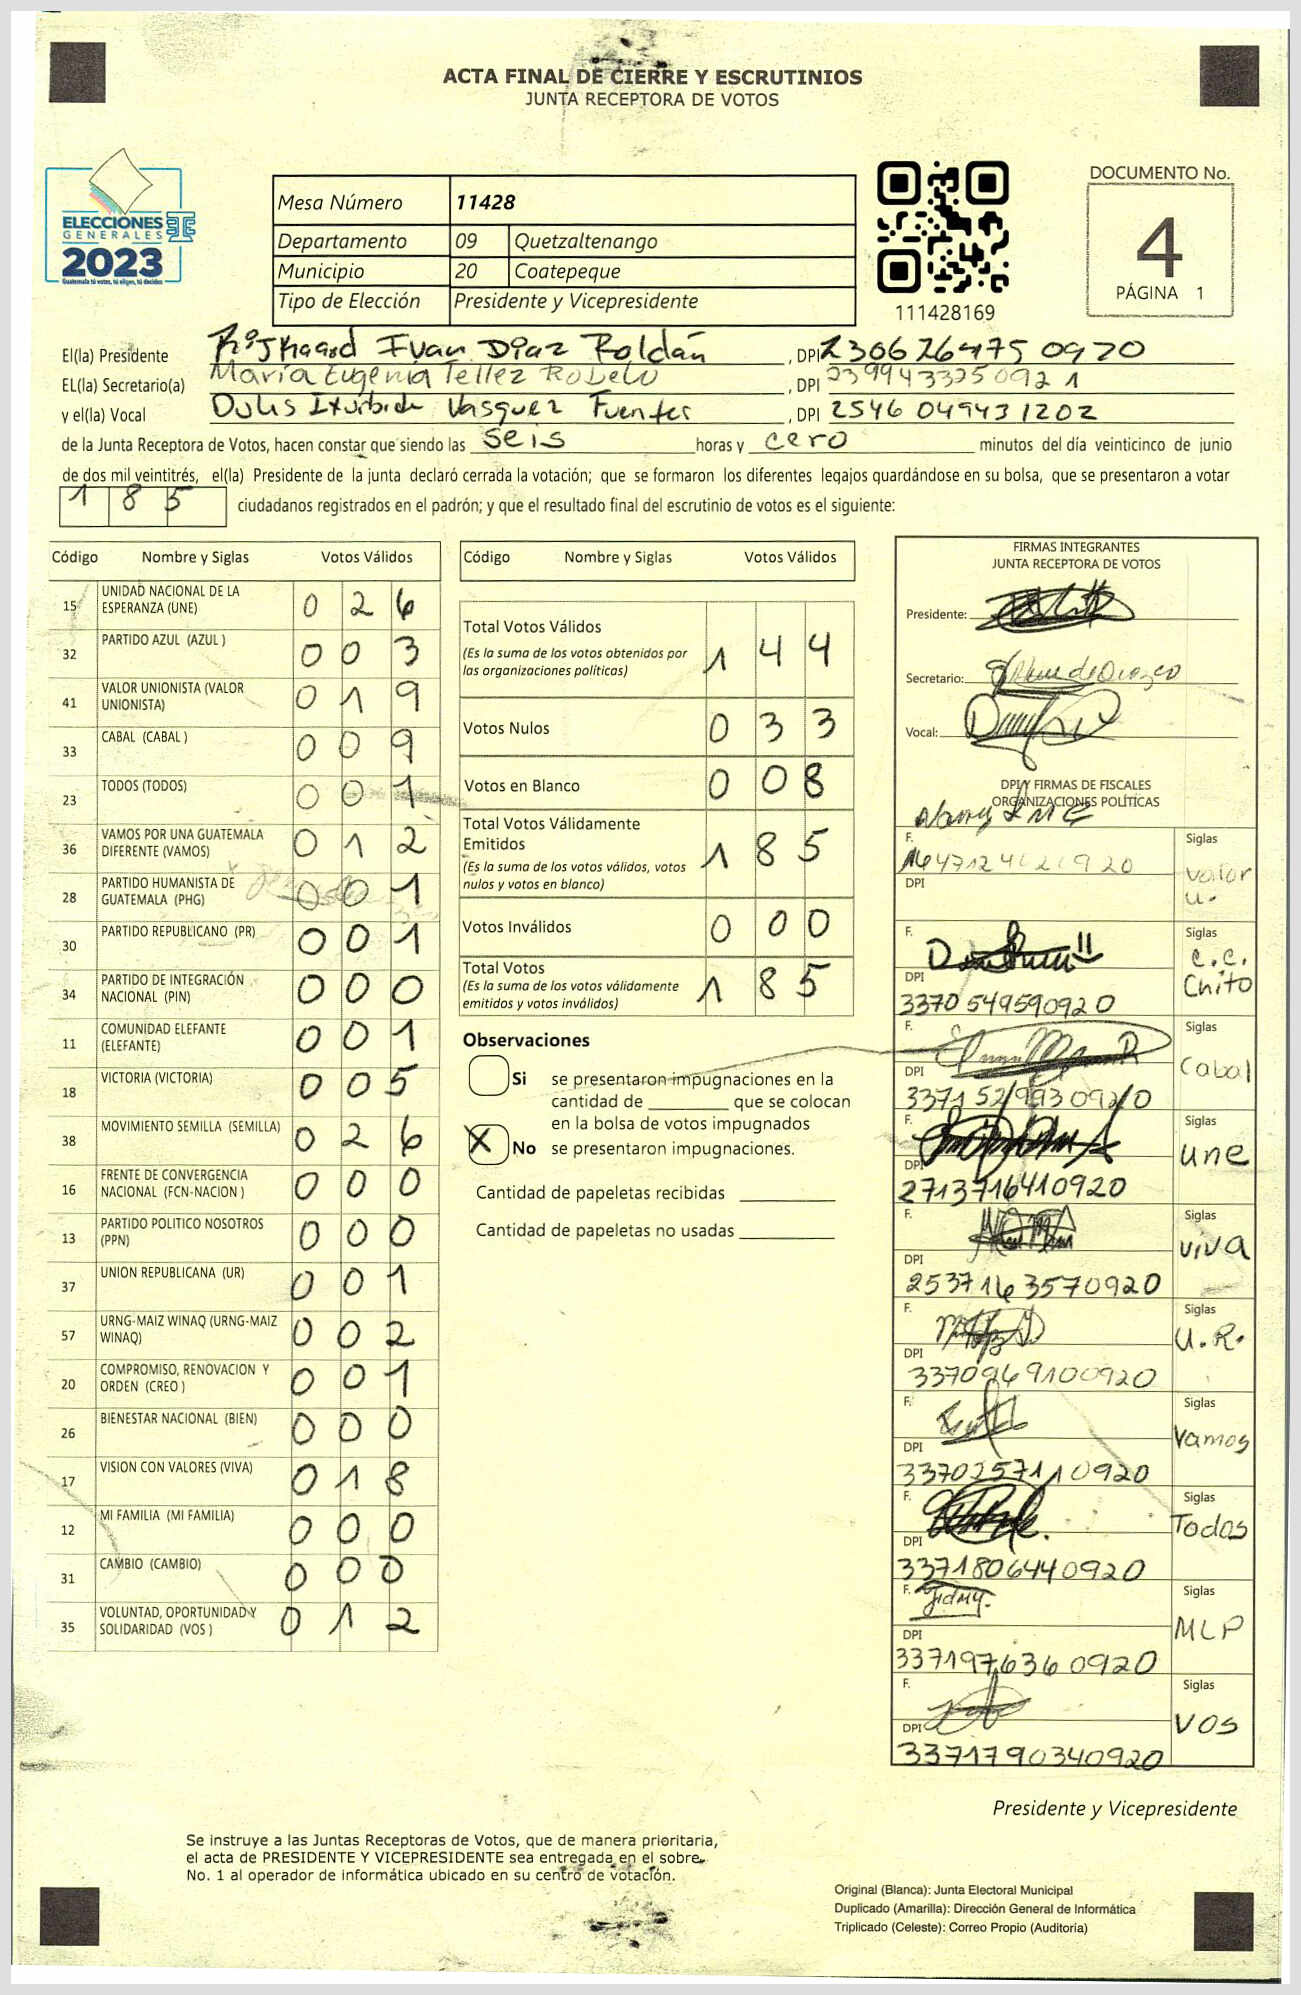 ACTA FINAL DE CIERRE Y ESCRUTINIOS
JUNTA RECEPTORA DE VOTOS
ELECCIONES
GENERALES
2023
Guatemala tú votas, tú eliges, tú decides
Mesa Número 11428
Departamento 09 Quetzaltenango
Municipio 20 Coatepeque
Tipo de Elección Presidente y Vicepresidente
111428169
DOCUMENTO No.
4
PÁGINA 1
El(la) Presidente Rijkaard Ivan Díaz Roldán , DPI 2306264750920
EL(la) Secretario(a) María Eugenia Tellez Robelo , DPI 2399433250921
y el(la) Vocal Dulis Iturbide Vasquez Fuentes , DPI 2546 04943 1202
de la Junta Receptora de Votos, hacen constar que siendo las seis horas y cero minutos del día veinticinco de junio
de dos mil veintitrés, el(la) Presidente de la junta declaró cerrada la votación; que se formaron los diferentes legajos guardándose en su bolsa, que se presentaron a votar
185 ciudadanos registrados en el padrón; y que el resultado final del escrutinio de votos es el siguiente:
Código Nombre y Siglas Votos Válidos
15 UNIDAD NACIONAL DE LA ESPERANZA (UNE) 0 2 6
32 PARTIDO AZUL (AZUL ) 0 0 3
41 VALOR UNIONISTA (VALOR UNIONISTA) 0 1 9
33 CABAL (CABAL ) 0 0 9
23 TODOS (TODOS) 0 0 1
36 VAMOS POR UNA GUATEMALA DIFERENTE (VAMOS) 0 1 2
28 PARTIDO HUMANISTA DE GUATEMALA (PHG) 0 0 1
30 PARTIDO REPUBLICANO (PR) 0 0 1
34 PARTIDO DE INTEGRACIÓN NACIONAL (PIN) 0 0 0
11 COMUNIDAD ELEFANTE (ELEFANTE) 0 0 1
18 VICTORIA (VICTORIA) 0 0 5
38 MOVIMIENTO SEMILLA (SEMILLA) 0 2 6
16 FRENTE DE CONVERGENCIA NACIONAL (FCN-NACION ) 0 0 0
13 PARTIDO POLITICO NOSOTROS (PPN) 0 0 0
37 UNION REPUBLICANA (UR) 0 0 1
57 URNG-MAIZ WINAQ (URNG-MAIZ WINAQ) 0 0 2
20 COMPROMISO, RENOVACION Y ORDEN (CREO ) 0 0 1
26 BIENESTAR NACIONAL (BIEN) 0 0 0
17 VISION CON VALORES (VIVA) 0 1 8
12 MI FAMILIA (MI FAMILIA) 0 0 0
31 CAMBIO (CAMBIO) 0 0 0
35 VOLUNTAD, OPORTUNIDAD Y SOLIDARIDAD (VOS ) 0 1 2
Código Nombre y Siglas Votos Válidos
Total Votos Válidos 1 4 4
(Es la suma de los votos obtenidos por
las organizaciones políticas)
Votos Nulos 0 3 3
Votos en Blanco 0 0 8
Total Votos Válidamente
Emitidos 1 8 5
(Es la suma de los votos válidos, votos
nulos y votos en blanco)
Votos Inválidos 0 0 0
Total Votos 1 8 5
(Es la suma de los votos válidamente
emitidos y votos inválidos)
Observaciones
Si se presentaron impugnaciones en la
cantidad de ________ que se colocan
en la bolsa de votos impugnados
X No se presentaron impugnaciones.
Cantidad de papeletas recibidas
Cantidad de papeletas no usadas
FIRMAS INTEGRANTES
JUNTA RECEPTORA DE VOTOS
Presidente:
Secretario:
Vocal:
DPI Y FIRMAS DE FISCALES
ORGANIZACIONES POLÍTICAS
F. Siglas
DPI Valor u.
F. Siglas
DPI C.C. Chito
3370 549590920
F. Siglas
DPI Cabal
3371 52199309210
F. Siglas
DPI une
2713716410920
F. Siglas
DPI viva
2537163570920
F. Siglas
DPI U.R.
3370969100920
F. Siglas
DPI Vamos
3370257110920
F. Siglas
DPI Todos
3371806440920
F. Siglas
DPI MLP
3371976360920
F. Siglas
DPI VOS
3371790340920
Presidente y Vicepresidente
Se instruye a las Juntas Receptoras de Votos, que de manera prioritaria,
el acta de PRESIDENTE Y VICEPRESIDENTE sea entregada en el sobre
No. 1 al operador de informática ubicado en su centro de votación.
Original (Blanca): Junta Electoral Municipal
Duplicado (Amarilla): Dirección General de Informática
Triplicado (Celeste): Correo Propio (Auditoría)